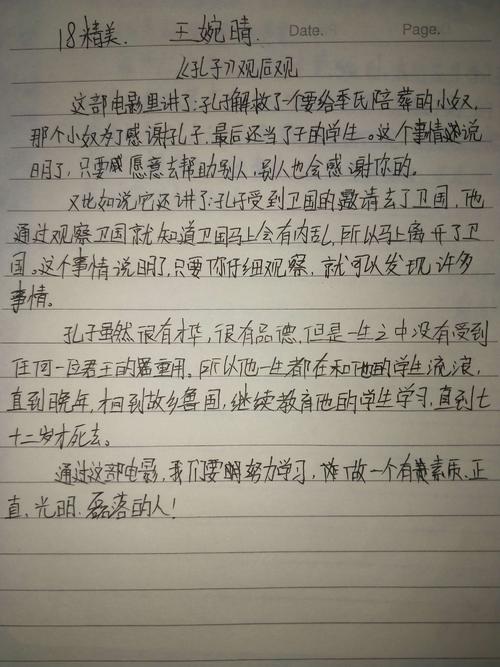 18精美. 王婉晴. Date. Page.
《孔子》观后观
这部电影里讲了:孔子解救了一个要给季氏陪葬的小奴,
那个小奴为了感谢孔子,最后还当了子的学生。这个事情说
明了,只要愿意去帮助别人,别人也会感谢你的。
又比如说,它还讲了:孔子受到卫国的邀请去了卫国,他
通过观察卫国就知道卫国马上会有内乱,所以马上离开了卫
国。这个事情说明了,只要你仔细观察,就可以发现许多
事情。
孔子虽然很有才华,很有品德,但是一生之中没有受到
任何一位君王的重用。所以他一生都在和他的学生流浪,
直到晚年,才回到故乡鲁国,继续教育他的学生学习,直到七
十二岁才死去。
通过这部电影,我们要努力学习,做一个有素质、正
直、光明、磊落的人!